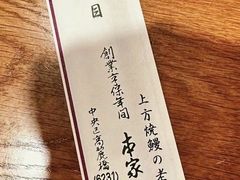 上方焼鰻の老
本家
創業享保年間
中央区高麗橋
(6231)
目